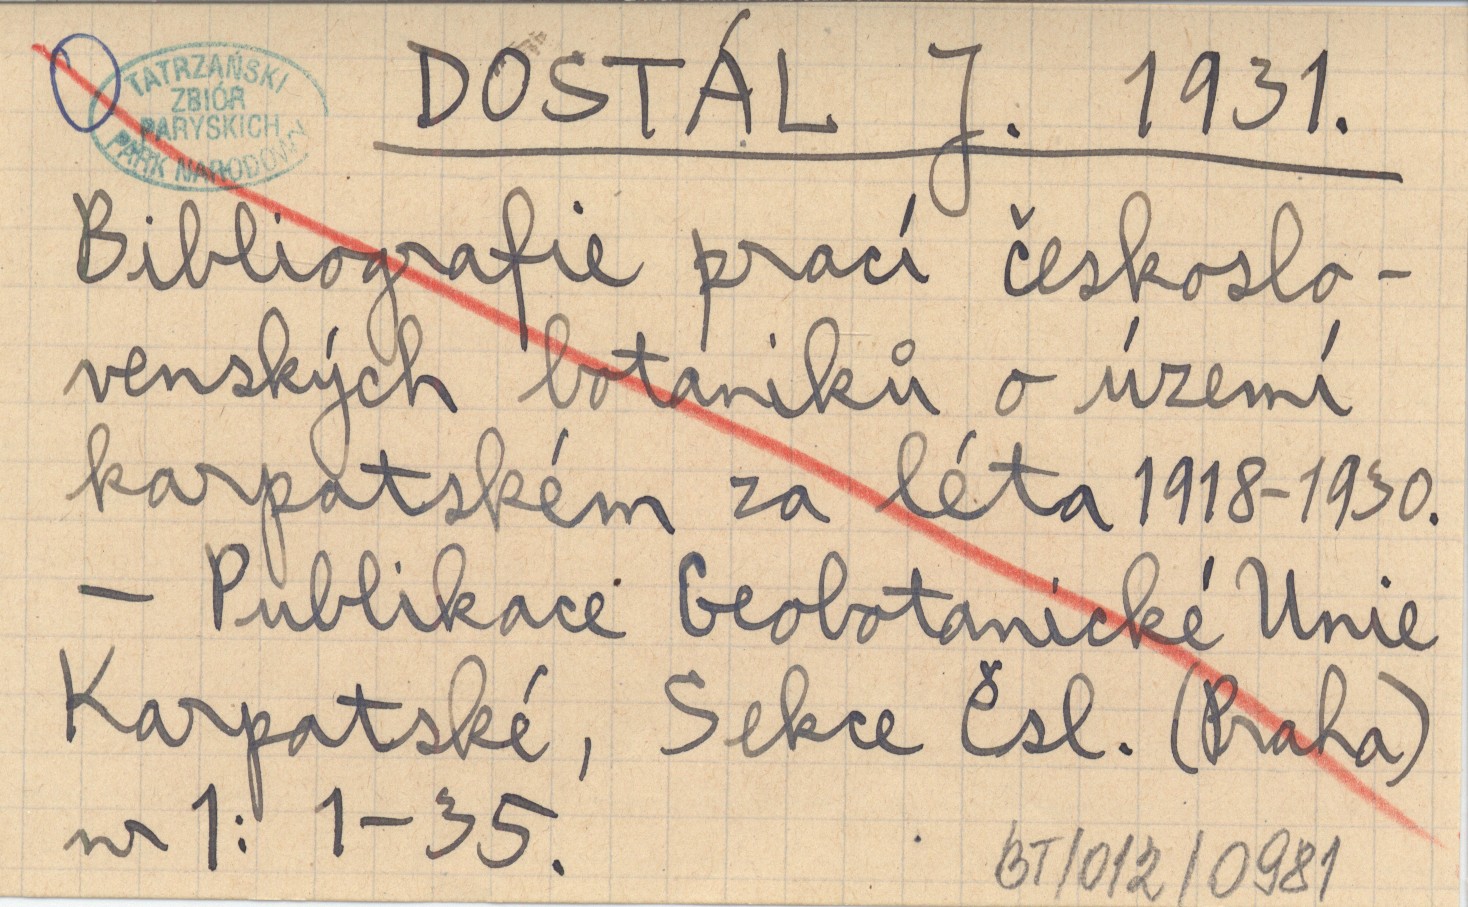 TATRZAŃSKI
ZBIÓR
PARYSKICH
PARK NARODOWY
DOSTÁL J. 1931.
Bibliografie prací českoslo-
venských botaniků o území
karpatském za léta 1918-1930.
— Publikace Geobotanické Unie
Karpatské, Sekce Čsl. (Praha)
nr 1: 1-35.
BT/012/0981